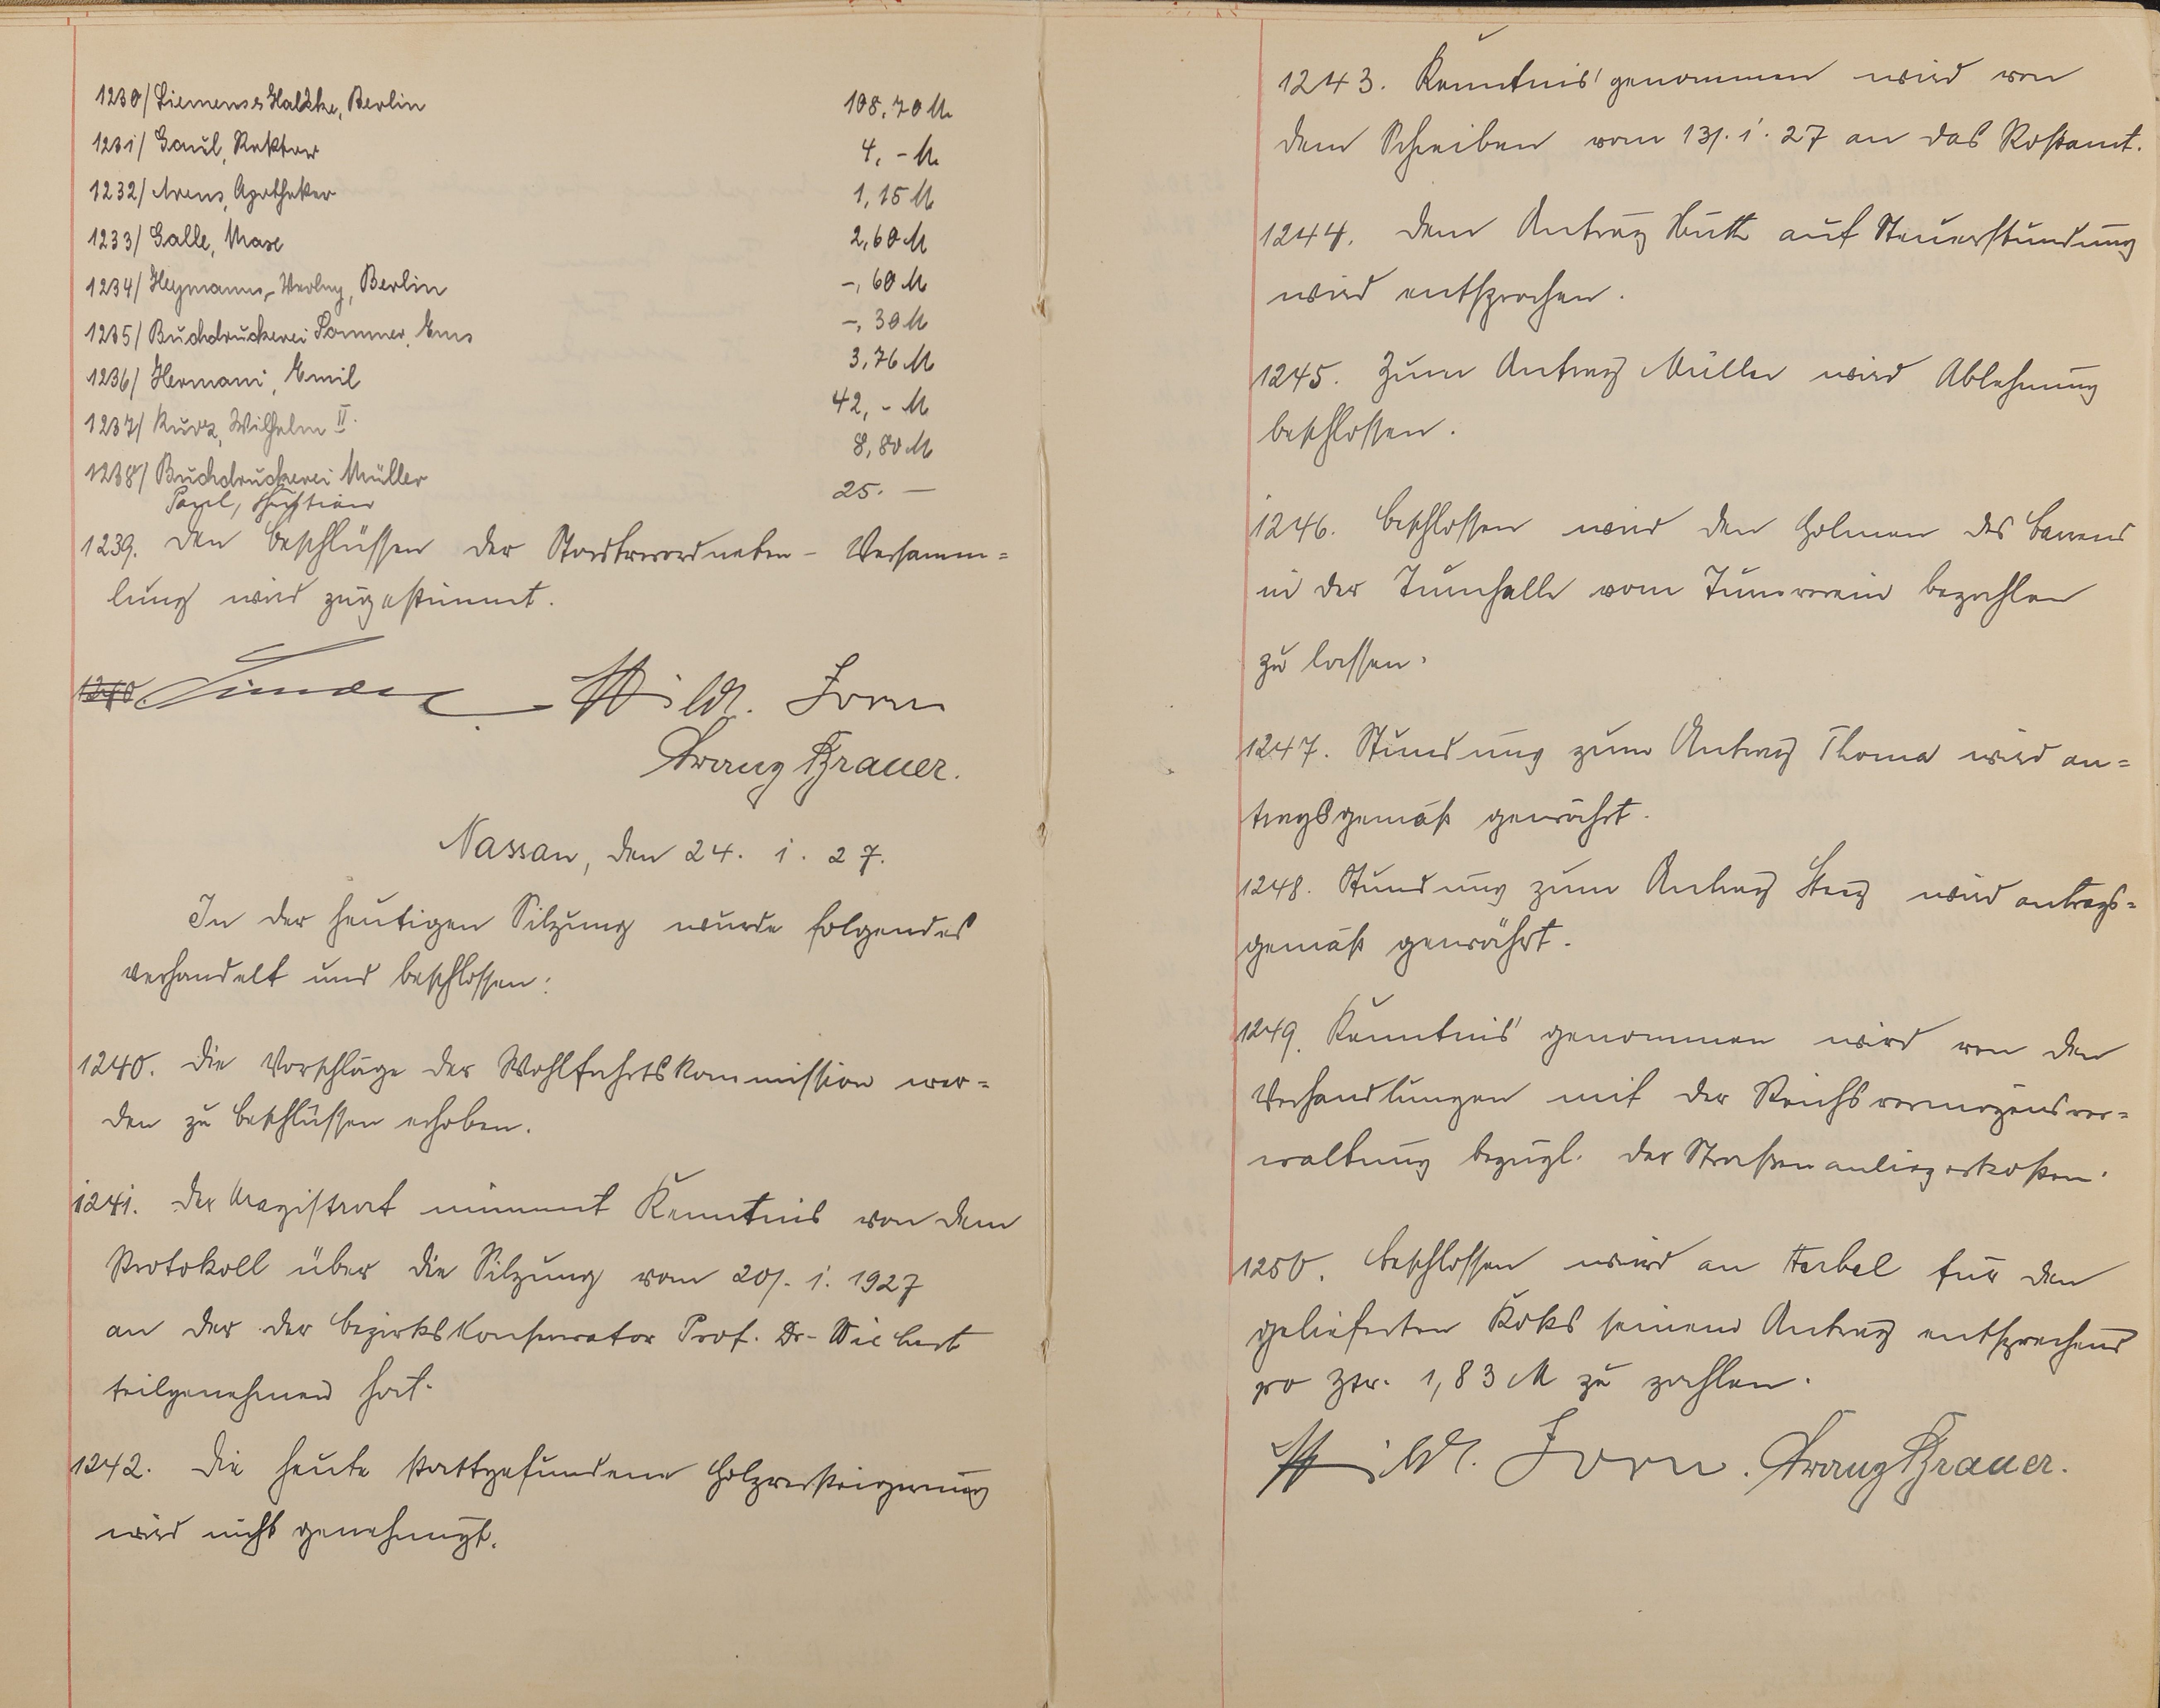 1230/ Siemens & Halske, Berlin 108,70 M
1231/ Gaul, Rektor 4,- M
1232/ Arens, Apotheker 1,15 M
1233/ Galle, Max 2,60 M
1234/ Heymanns-Verlag, Berlin -,60 M
1235/ Buchdruckerei Sommer, Ems -,30 M
1236/ Hermani, Emil 3,76 M
1237/ Kurz, Wilhelm II. 42,- M
1238/ Buchdruckerei Müller 8,80 M
25.-
1239. Den Beschlüssen der Stadtverordneten-Versamm=
lung wird zugestimmt.
1240
Wild. Zorn
Franz Brauer.
Nassau, den 24. 1. 27.
In der heutigen Sitzung wurde folgendes
verhandelt und beschlossen:
1240. Die Vorschläge der Wohlfahrtskommission wer=
den zu Beschlüssen erhoben.
1241. Der Magistrat nimmt Kenntnis von dem
Protokoll über die Sitzung vom 20/. 1. 1927
an der der Bezirkskonservator Prof. Dr.
teilgenommen hat.
1242. Die heute stattgefundene Holzversteigerung
wird nicht genehmigt.
1243. Kenntnis genommen wird von
dem Schreiben vom 13/. 1. 27 an das Postamt.
1244. Dem Antrag Huth auf Steuerstundung
wird entsprochen.
1245. Zum Antrag Müller wird Ablehnung
beschlossen.
1246. Beschlossen wird den Holmen des Barrens
in der Turnhalle vom Turnverein bezahlen
zu lassen.
1247. Stundung zum Antrag Thoma wird an=
tragsgemäß gewährt.
1248. Stundung zum Antrag wird antrags=
gemäß gewährt.
1249. Kenntnis genommen wird von den
Verhandlungen mit der Reichsvermögensver=
waltung bezügl. der Straßenanliegerkosten.
1250. Beschlossen wird an Herbel für den
gelieferten Koks seinem Antrag entsprechend
pro Ztr. 1,83 M zu zahlen.
Wild. Zorn. Franz Brauer.